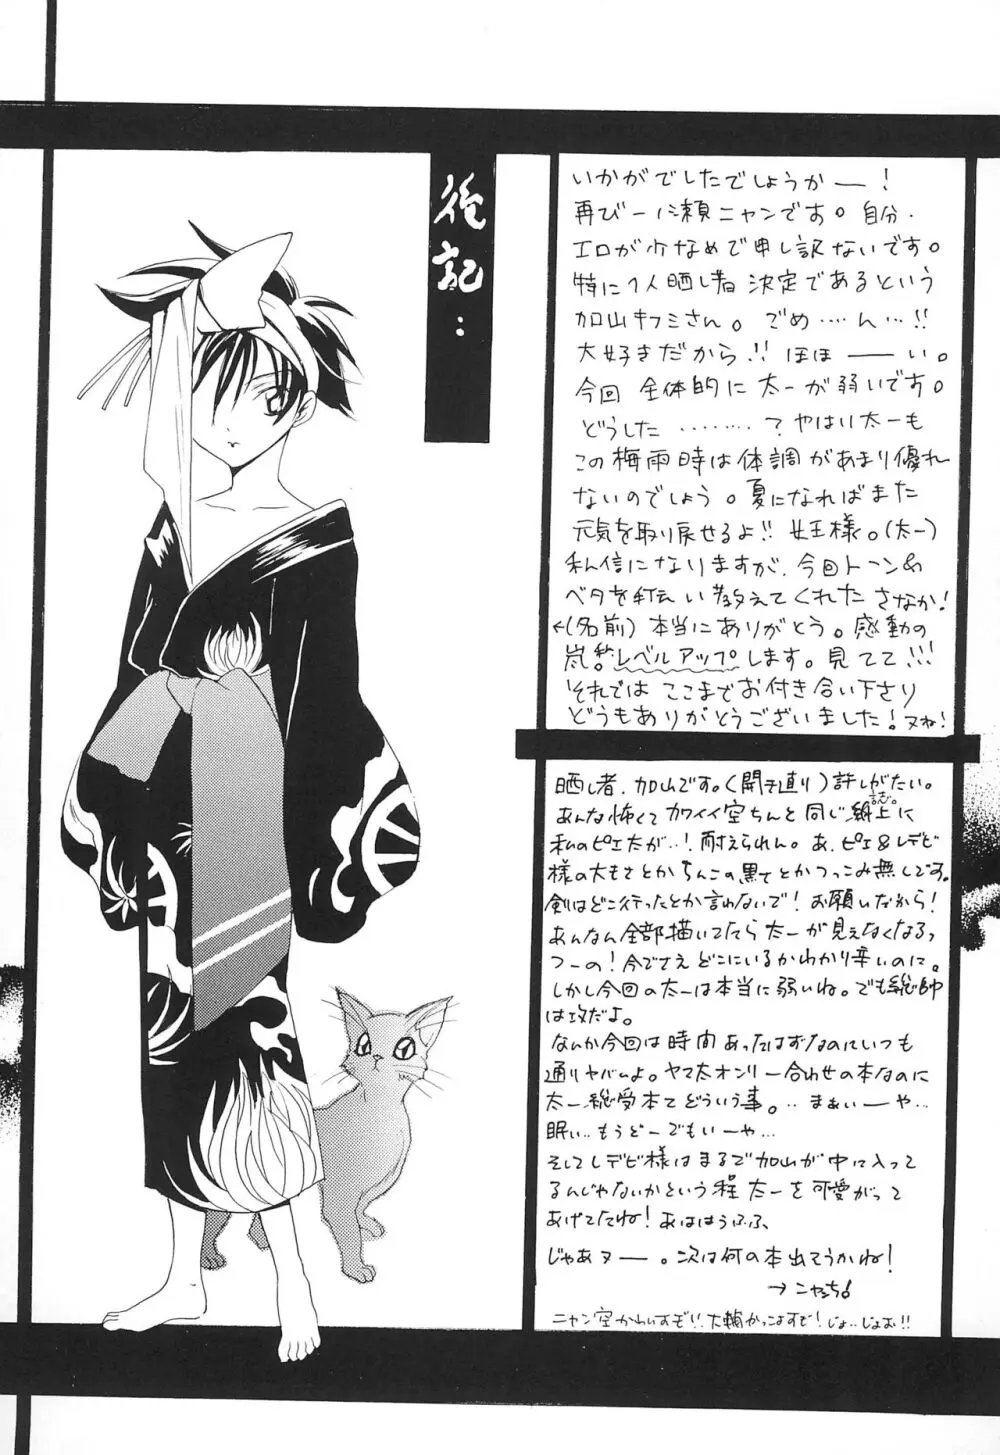 後記:
いかがでしたでしょうかー!
再び一ノ瀬ニャンです。自分、
エロが少なめで申し訳ないです。
特に1人晒し者決定であるという
加山キフミさん。ごめ……ん…!!
大好きだから!!ほほーい。
今回全体的に太一が弱いです。
どうした………?やはり太一も
この梅雨時は体調があまり優れ
ないのでしょう。夏になればまた
元気を取り戻せるよ!!女王様。(太一)
私信になりますが、今回トーン&
ベタを手伝い教えてくれたさなか!
←(名前)本当にありがとう。感動の
嵐。私レベルアップします。見てて!!!
それではここまでお付き合い下さり
どうもありがとうございました!ヌね!
晒し者、加山です。(開き直り)許しがたい。
あんな怖くてカワイイ空ちんと同じ誌上に
私のピエ太が…!耐えられん。あ、ピエ&レデビ
様の大もさとかちんこの黒さとかつっこみ無しです。
剣はどこ行ったとか言わないで!お願いだから!
あんなん全部描いてたら太一が見えなくなるっ
つーの!今でさえどこにいるかわかり辛いのに。
しかし今回の太一は本当に弱いね。でも総帥
は攻だよ。
なんか今回は時間あったはずなのにいつも
通りヤバムよ。ヤマ太オンリー合わせの本なのに
太一総受本てどういう事。‥まぁいーや…
眠い‥もうどーでもいーや…
そしてレデビ様はまるで加山が中に入って
るんじゃないかという程太一を可愛がって
あげてたね!あははうふふ、
じゃあヌー。次は何の本出そうかね!
→ニャンち!
ニャン空かわいすぞ!!大輔かっこよすぞ!じょ…じょお!!